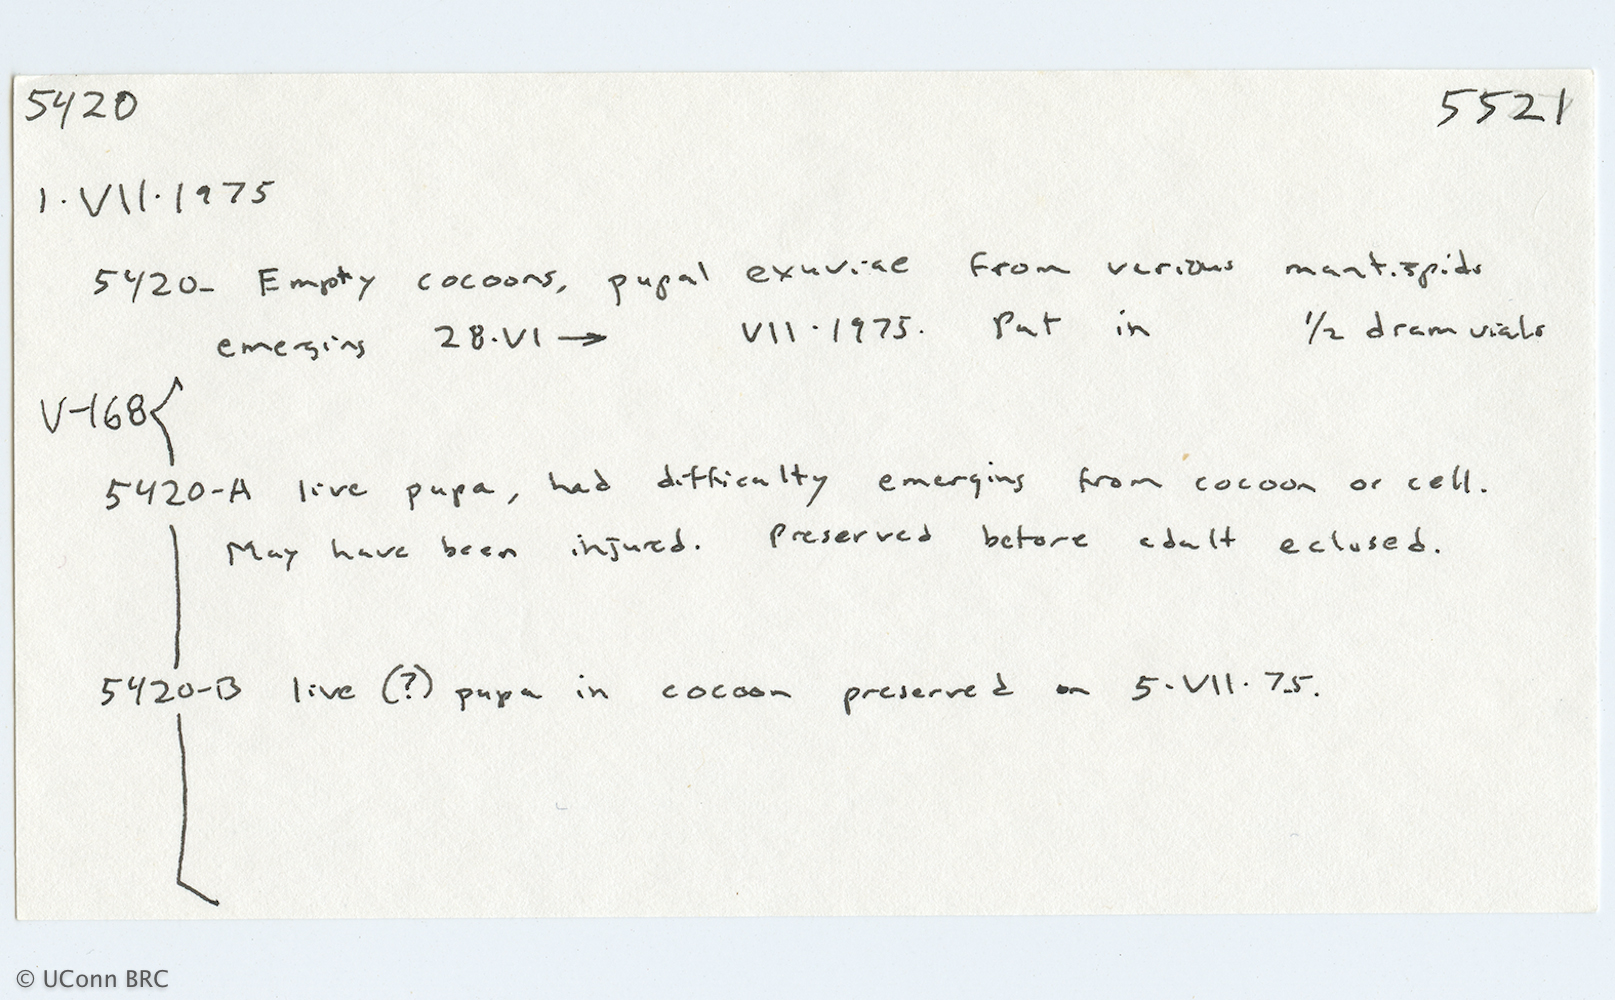 5420 5521
1·VII·1975
5420- Empty cocoons, pupal exuviae from various mantispids
emerging 28·VI → VII·1975. Put in 1/2 dram vials
V-168
5420-A live pupa, had difficulty emerging from cocoon or cell.
May have been injured. Preserved before adult eclosed.
5420-B live (?) pupa in cocoon preserved on 5·VII·75.
© UConn BRC